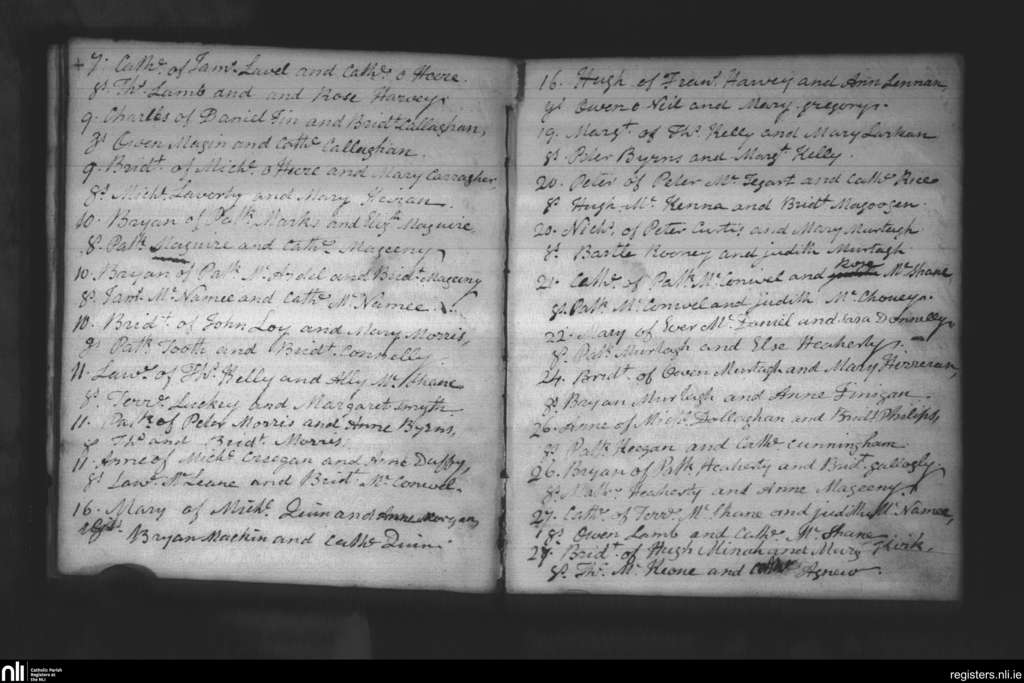 + 7. Cathe. of Jams. Lavel and Cathe. o Heere.
gs. Ths. Lamb and and Rose Harvey.
9. Charles of Daniel Fin and Bridt. Callaghan,
gs. Owen Magin and Cathe. Callaghan.
9. Bridt. of Michl. o Heere and Mary Carragher,
gs. Michl. Laverty and Mary
10. Bryan of Patk. Marks and Elizt. Maguire,
gs. Patk. Maguire and Cathe. Mageeny
10. Bryan of Patk. Mc. Ardel and Bridt. Mageeny
gs. Jams. Mc. Namee and Cathe. Mc. Namee.
10. Bridt. of John Loy and Mary Morris,
gs. Patk. Tooth and Bridt. Connelly.
11. Lawe. of Ths. Kelly and Ally Mc. Shane
gs. Terre. Luckey and Margaret Smyth.
11. Patk. of Peter Morris and Anne Byrns,
gs. Ths. and Bridt. Morris.
11. Anne of Michl. Creegan and Anne Duffy,
gs. Lawe. Mc. Leane and Bridt. Mc. Conwel.
16. Mary of Michl. Quin and Anne Morgan,
gs. Bryan Mackin and Cathe. Quin.
16. Hugh of Frans. Harvey and Ann Lennan,
gs. Owen o Neil and Mary gregory.
19. Margt. of Ths. Kelly and Mary Larkan
gs. Peter Byrns and Margt. Kelly.
20. Peter of Peter Mc. Tegart and Cathe. Rice
gs. Hugh Mc. Kenna and Bridt. Magoogen.
20. Nichs. of Peter Curtis and Mary Murtagh.
gs. Bartle Rooney and judith Murtagh
Rose
21. Cathe. of Patk. Mc. Conwel and Mc. Shane,
gs. Patk. Mc. Conwel and judith Mc. Chouey.
22. Mary of Ever Mc. Daniel and Sara Donnelly.
gs. Patk. Murtagh and Else Heaherty.
24. Bridt. of Owen Murtagh and Mary
gs. Bryan Murtagh and Anne Finigan.
26. Anne of Michl. Dollaghan and Bridt. Philips,
gs. Patk. Keegan and Cathe. Cunningham.
26. Bryan of Patk. Heaherty and Bridt. gallogly
gs. Matt. Heaherty and Anne Mageeny.
27. Cathe. of Terre. Mc. Shane and judith Mc. Namee,
gs. Owen Lamb and Cathe. Mc. Shane
27. Bridt. of Hugh Minah and Mary
gs. Ths. Mc. Keone and Agnew.
nli
Catholic Parish
Registers at
the NLI
registers.nli.ie